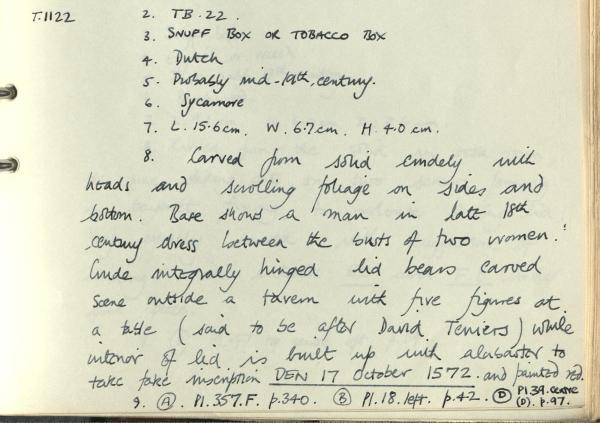 T.1122 2. TB.22.
3. SNUFF BOX OR TOBACCO BOX
4. Dutch
5. Probably mid-19th. century.
6. Sycamore
7. L. 15.6 cm. W. 6.7 cm. H. 4.0 cm.
8. Carved from solid crudely with
heads and scrolling foliage on sides and
bottom. Base shows a man in late 18th
century dress between the busts of two women.
Crude integrally hinged lid bears carved
scene outside a tavern with five figures at
a table (said to be after David Teniers) while
interior of lid is built up with alabaster to
take fake inscription DEN 17 October 1572. and painted red.
9. (A). Pl.357.F. p.340. (B) Pl.18.left. p.42. (D) Pl 39. centre
(D). p.97.